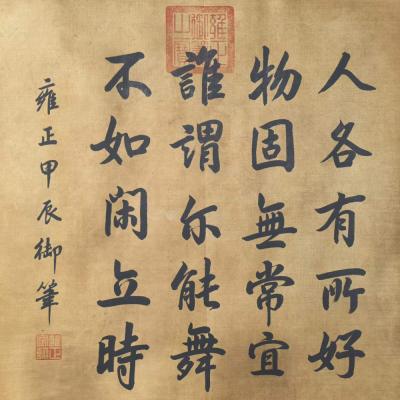 人各有所好
物固無常宜
誰謂尔能舞
不如閑立時
雍正甲辰御筆